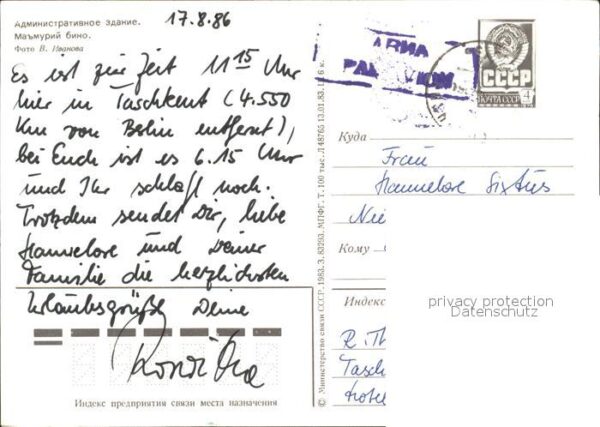 17.8.86
Административное здание.
Маъмурий бино.
Фото В. Иванова
Es ist zur Zeit 11 15 Uhr
hier in Taschkent (4.550
Km von Berlin entfernt),
bei Euch ist es 6.15 Uhr
und Ihr schlaft noch.
Trotzdem sendet Dir, liebe
Hannelore und Deiner
Familie die herzlichsten
Urlaubsgrüße Deine
Индекс предприятия связи места назначения
© Министерство связи СССР, 1983. З. 83293, МПФГ, Т. 100 тыс. Л48765 13.01.83. Ц. 6 к.
АВИА
PAR AVION
СССР
ПОЧТА СССР
4
Куда
Frau
Hannelore Sixtus
Nie
Кому
Индекс
privacy protection
Datenschutz
R. Th
Tasch
Hotel